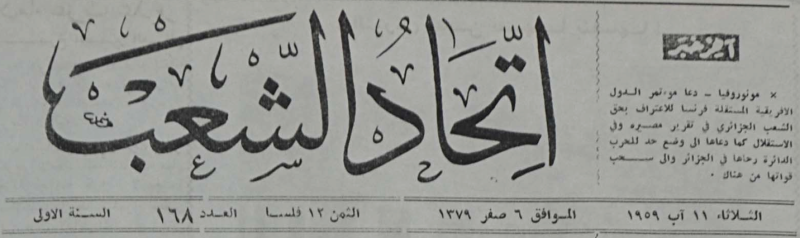 اتحاد الشعب
آخر خبر
× مونروفيا - دعا مؤتمر الدول
الافريقية المستقلة فرنسا للاعتراف بحق
الشعب الجزائري في تقرير مصيره وفي
الاستقلال كما دعاها الى وضع حد للحرب
الدائرة رحاها في الجزائر والى سحب
قواتها من هناك .
الثلاثاء ١١ آب ١٩٥٩ الموافق ٦ صفر ١٣٧٩ الثمن ١٢ فلسا العدد ١٦٨ السنة الاولى